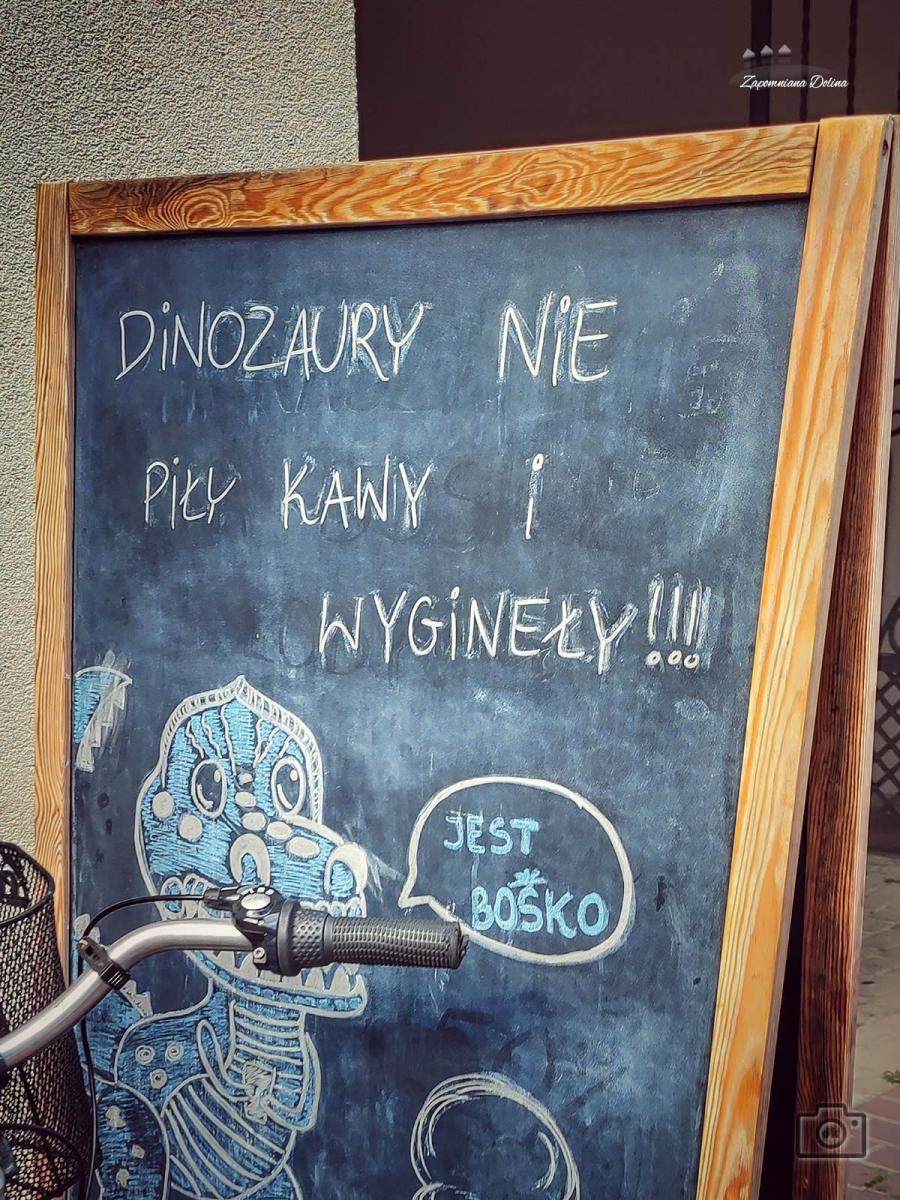 Zapomniana Dolina
DiNOZAURY NiE
PiŁY KAWY i
WYGiNEŁY!!!
JEST
BOSKO